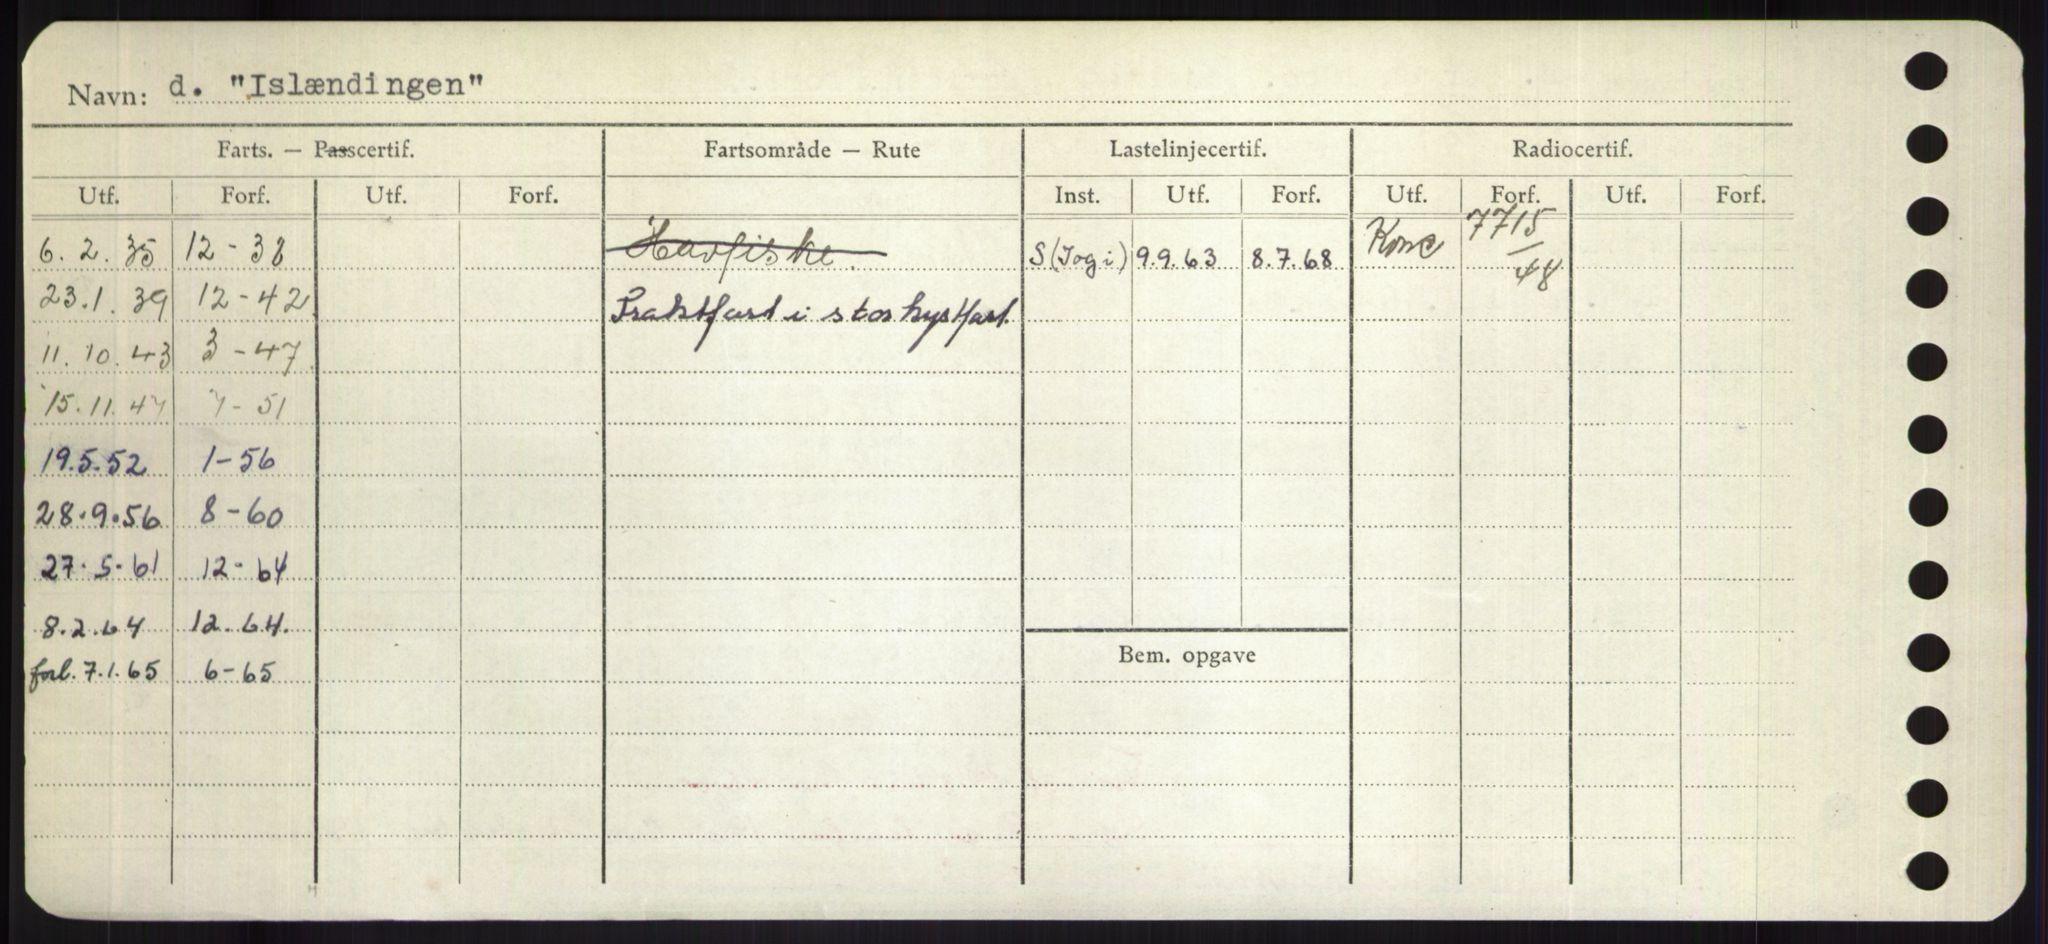 Navn: d. "Islændingen"
Farts. — Passcertif. Fartsområde — Rute Lastelinjecertif. Radiocertif.
Utf. Forf. Utf. Forf. Inst. Utf. Forf. Utf. Forf. Utf. Forf.
6. 2. 35 12 - 38 Havfiske. S (Jog i) 9.9.63 8.7.68 Konc 7715/48
23.1. 39 12 - 42 Fraktfart i stor kystfart.
11. 10. 43 3 - 47
15. 11. 47 7 - 51
19.5.52 1-56
28.9.56 8-60
27.5.61 12-64
8.2.64 12.64.
forl. 7.1.65 6-65
Bem. opgave